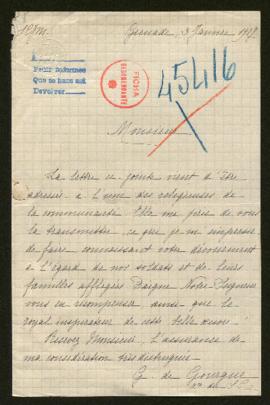 Grenade, 3 Janvier
A
Pedir informes
Que se haga así
Devolver
FICHA
45416
Monsieur
La lettre ci-jointe vient d'être
adressée à l'une des religieuses de
la communauté. Elle me prie de vous
la transmettre, ce que je m'empresse
de faire connaissant votre dévouement
à l'égard de nos soldats et de leurs
familles affligées. Daigne Notre Seigneur
vous en récompenser ainsi que le
royal inspirateur de cette belle œuvre.
Recevez Monsieur, l'assurance de
ma considération très distinguée.
de Gourgue